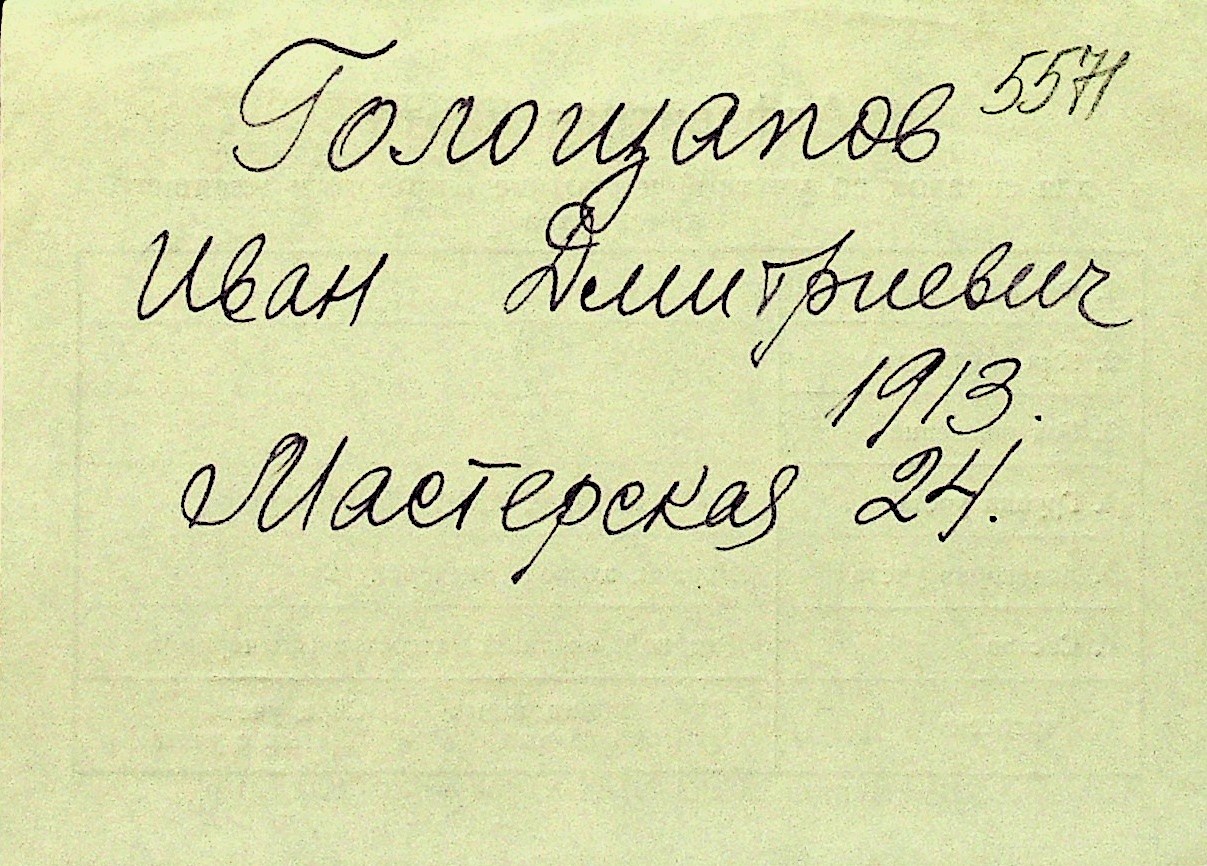 Голощапов 5571
Иван Дмитриевич
1913.
Мастерская 24.